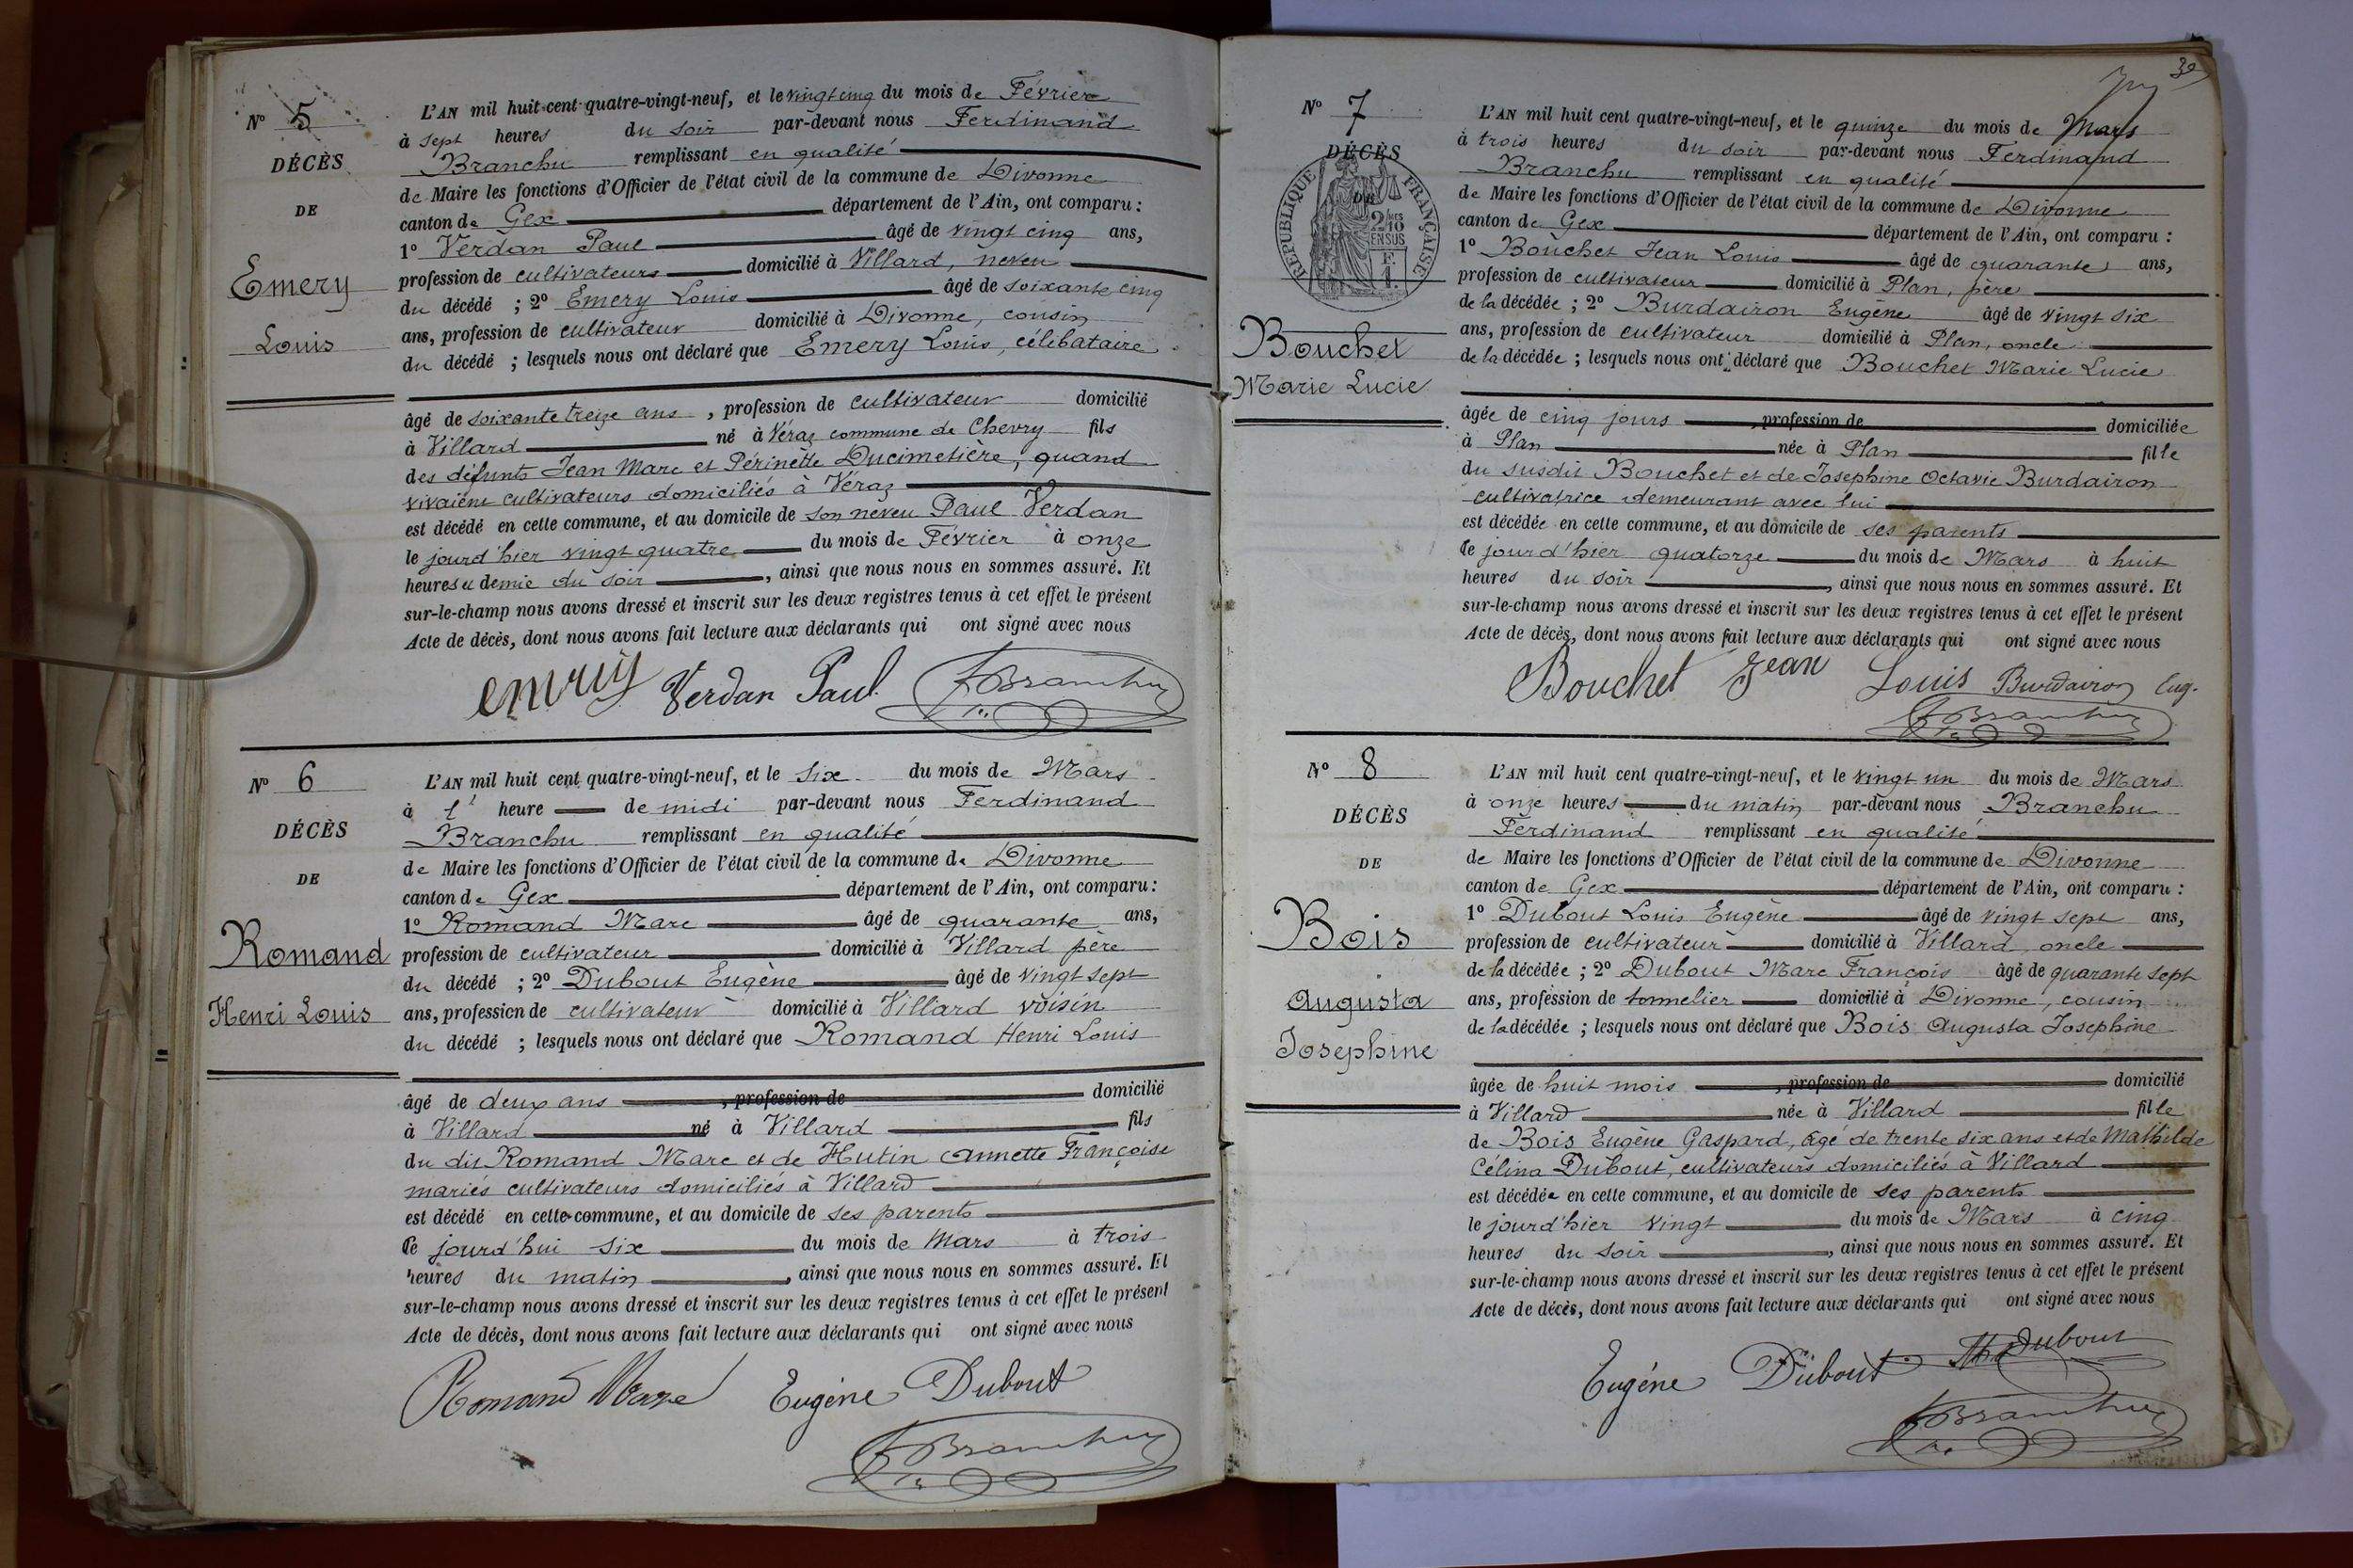 N° 5
DÉCÈS
DE
Emery
Louis
L'AN mil huit cent quatre-vingt-neuf, et le vingt cinq du mois de Février
à sept heures du soir par-devant nous Ferdinand
Branchu remplissant en qualité
de Maire les fonctions d'Officier de l'état civil de la commune de Divonne
canton de Gex département de l'Ain, ont comparu :
1° Verdan Paul âgé de vingt cinq ans,
profession de cultivateurs domicilié à Villard, neveu
du décédé ; 2° Emery Louis âgé de soixante cinq
ans, profession de cultivateur domicilié à Divonne, cousin
du décédé ; lesquels nous ont déclaré que Emery Louis, célibataire
âgé de soixante treize ans, profession de cultivateur domicilié
à Villard né à Véraz commune de Chevry fils
des défunts Jean Marc et Périnette Ducimetière, quand
vivaient cultivateurs domiciliés à Véraz
est décédé en cette commune, et au domicile de son neveu Paul Verdan
le jourd'hier vingt quatre du mois de Février à onze
heures et demie du soir, ainsi que nous nous en sommes assuré. Et
sur-le-champ nous avons dressé et inscrit sur les deux registres tenus à cet effet le présent
Acte de décès, dont nous avons fait lecture aux déclarants qui ont signé avec nous
Verdan Paul. F Branchu
N° 6
DÉCÈS
DE
Romand
Henri Louis
L'AN mil huit cent quatre-vingt-neuf, et le six du mois de Mars
à heure de midi par-devant nous Ferdinand
Branchu remplissant en qualité
de Maire les fonctions d'Officier de l'état civil de la commune de Divonne
canton de Gex département de l'Ain, ont comparu :
1° Romand Marc âgé de quarante ans,
profession de cultivateur domicilié à Villard père
du décédé ; 2° Dubout Eugène âgé de vingt sept
ans, profession de cultivateur domicilié à Villard voisin
du décédé ; lesquels nous ont déclaré que Romand Henri Louis
âgé de deux ans, profession de domicilié
à Villard né à Villard fils
du dit Romand Marc et de Hutin Annette Françoise
mariés cultivateurs domiciliés à Villard
est décédé en cette commune, et au domicile de ses parents
le jourd'hui six du mois de Mars à trois
heures du matin, ainsi que nous nous en sommes assuré. Et
sur-le-champ nous avons dressé et inscrit sur les deux registres tenus à cet effet le présent
Acte de décès, dont nous avons fait lecture aux déclarants qui ont signé avec nous
Romand Marc Eugène Dubout
F Branchu
N° 7
DÉCÈS
DE
RÉPUBLIQUE FRANÇAISE
2/10
EN SUS
Bouchet
Marie Lucie
L'AN mil huit cent quatre-vingt-neuf, et le quinze du mois de Mars
à trois heures du soir par-devant nous Ferdinand
Branchu remplissant en qualité
de Maire les fonctions d'Officier de l'état civil de la commune de Divonne
canton de Gex département de l'Ain, ont comparu :
1° Bouchet Jean Louis âgé de quarante ans,
profession de cultivateur domicilié à Plan, père
de la décédée ; 2° Burdairon Eugène âgé de vingt six
ans, profession de cultivateur domicilié à Plan, oncle
de la décédée ; lesquels nous ont déclaré que Bouchet Marie Lucie
âgée de cinq jours, profession de domiciliée
à Plan née à Plan fille
du susdit Bouchet et de Josephine Octavie Burdairon
cultivatrice demeurant avec lui
est décédée en cette commune, et au domicile de ses parents
le jourd'hier quatorze du mois de Mars à huit
heures du soir, ainsi que nous nous en sommes assuré. Et
sur-le-champ nous avons dressé et inscrit sur les deux registres tenus à cet effet le présent
Acte de décès, dont nous avons fait lecture aux déclarants qui ont signé avec nous
Bouchet Jean Louis Burdairon Eug.
F Branchu
N° 8
DÉCÈS
DE
Bois
Augusta
Josephine
L'AN mil huit cent quatre-vingt-neuf, et le vingt un du mois de Mars
à onze heures du matin par-devant nous Branchu
Ferdinand remplissant en qualité
de Maire les fonctions d'Officier de l'état civil de la commune de Divonne
canton de Gex département de l'Ain, ont comparu :
1° Dubout Louis Eugène âgé de vingt sept ans,
profession de cultivateur domicilié à Villard oncle
de la décédée ; 2° Dubout Marc François âgé de quarante sept
ans, profession de tonnelier domicilié à Divonne, cousin
de la décédée ; lesquels nous ont déclaré que Bois Augusta Josephine
âgée de huit mois, profession de domicilié
à Villard née à Villard fille
de Bois Eugène Gaspard, âgé de trente six ans et de Mathilde
Célina Dubout, cultivateurs domiciliés à Villard
est décédée en cette commune, et au domicile de ses parents
le jourd'hier vingt du mois de Mars à cinq
heures du soir, ainsi que nous nous en sommes assuré. Et
sur-le-champ nous avons dressé et inscrit sur les deux registres tenus à cet effet le présent
Acte de décès, dont nous avons fait lecture aux déclarants qui ont signé avec nous
Eugène Dubout Dubout
F Branchu